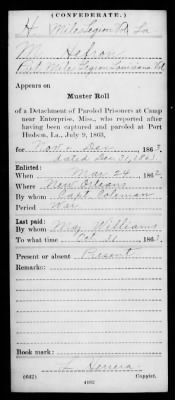 (CONFEDERATE.)
H Miles Legion La
M. Hofron
Miles Legion Louisiana Vol
Appears on
Muster Roll
of a Detachment of Paroled Prisoners at Camp
near Enterprise, Miss., who reported after
having been captured and paroled at Port
Hudson, La., July 9, 1863,
for Nov & Dec 1863.
dated Dec 31, 1863
Enlisted:
When Mar 24, 1862
Where New Orleans
By whom Capt Coleman
Period War
Last paid:
By whom Maj Williams
To what time Oct 31 1863
Present or absent Present
Remarks:
Book mark:
(642) Copyist.